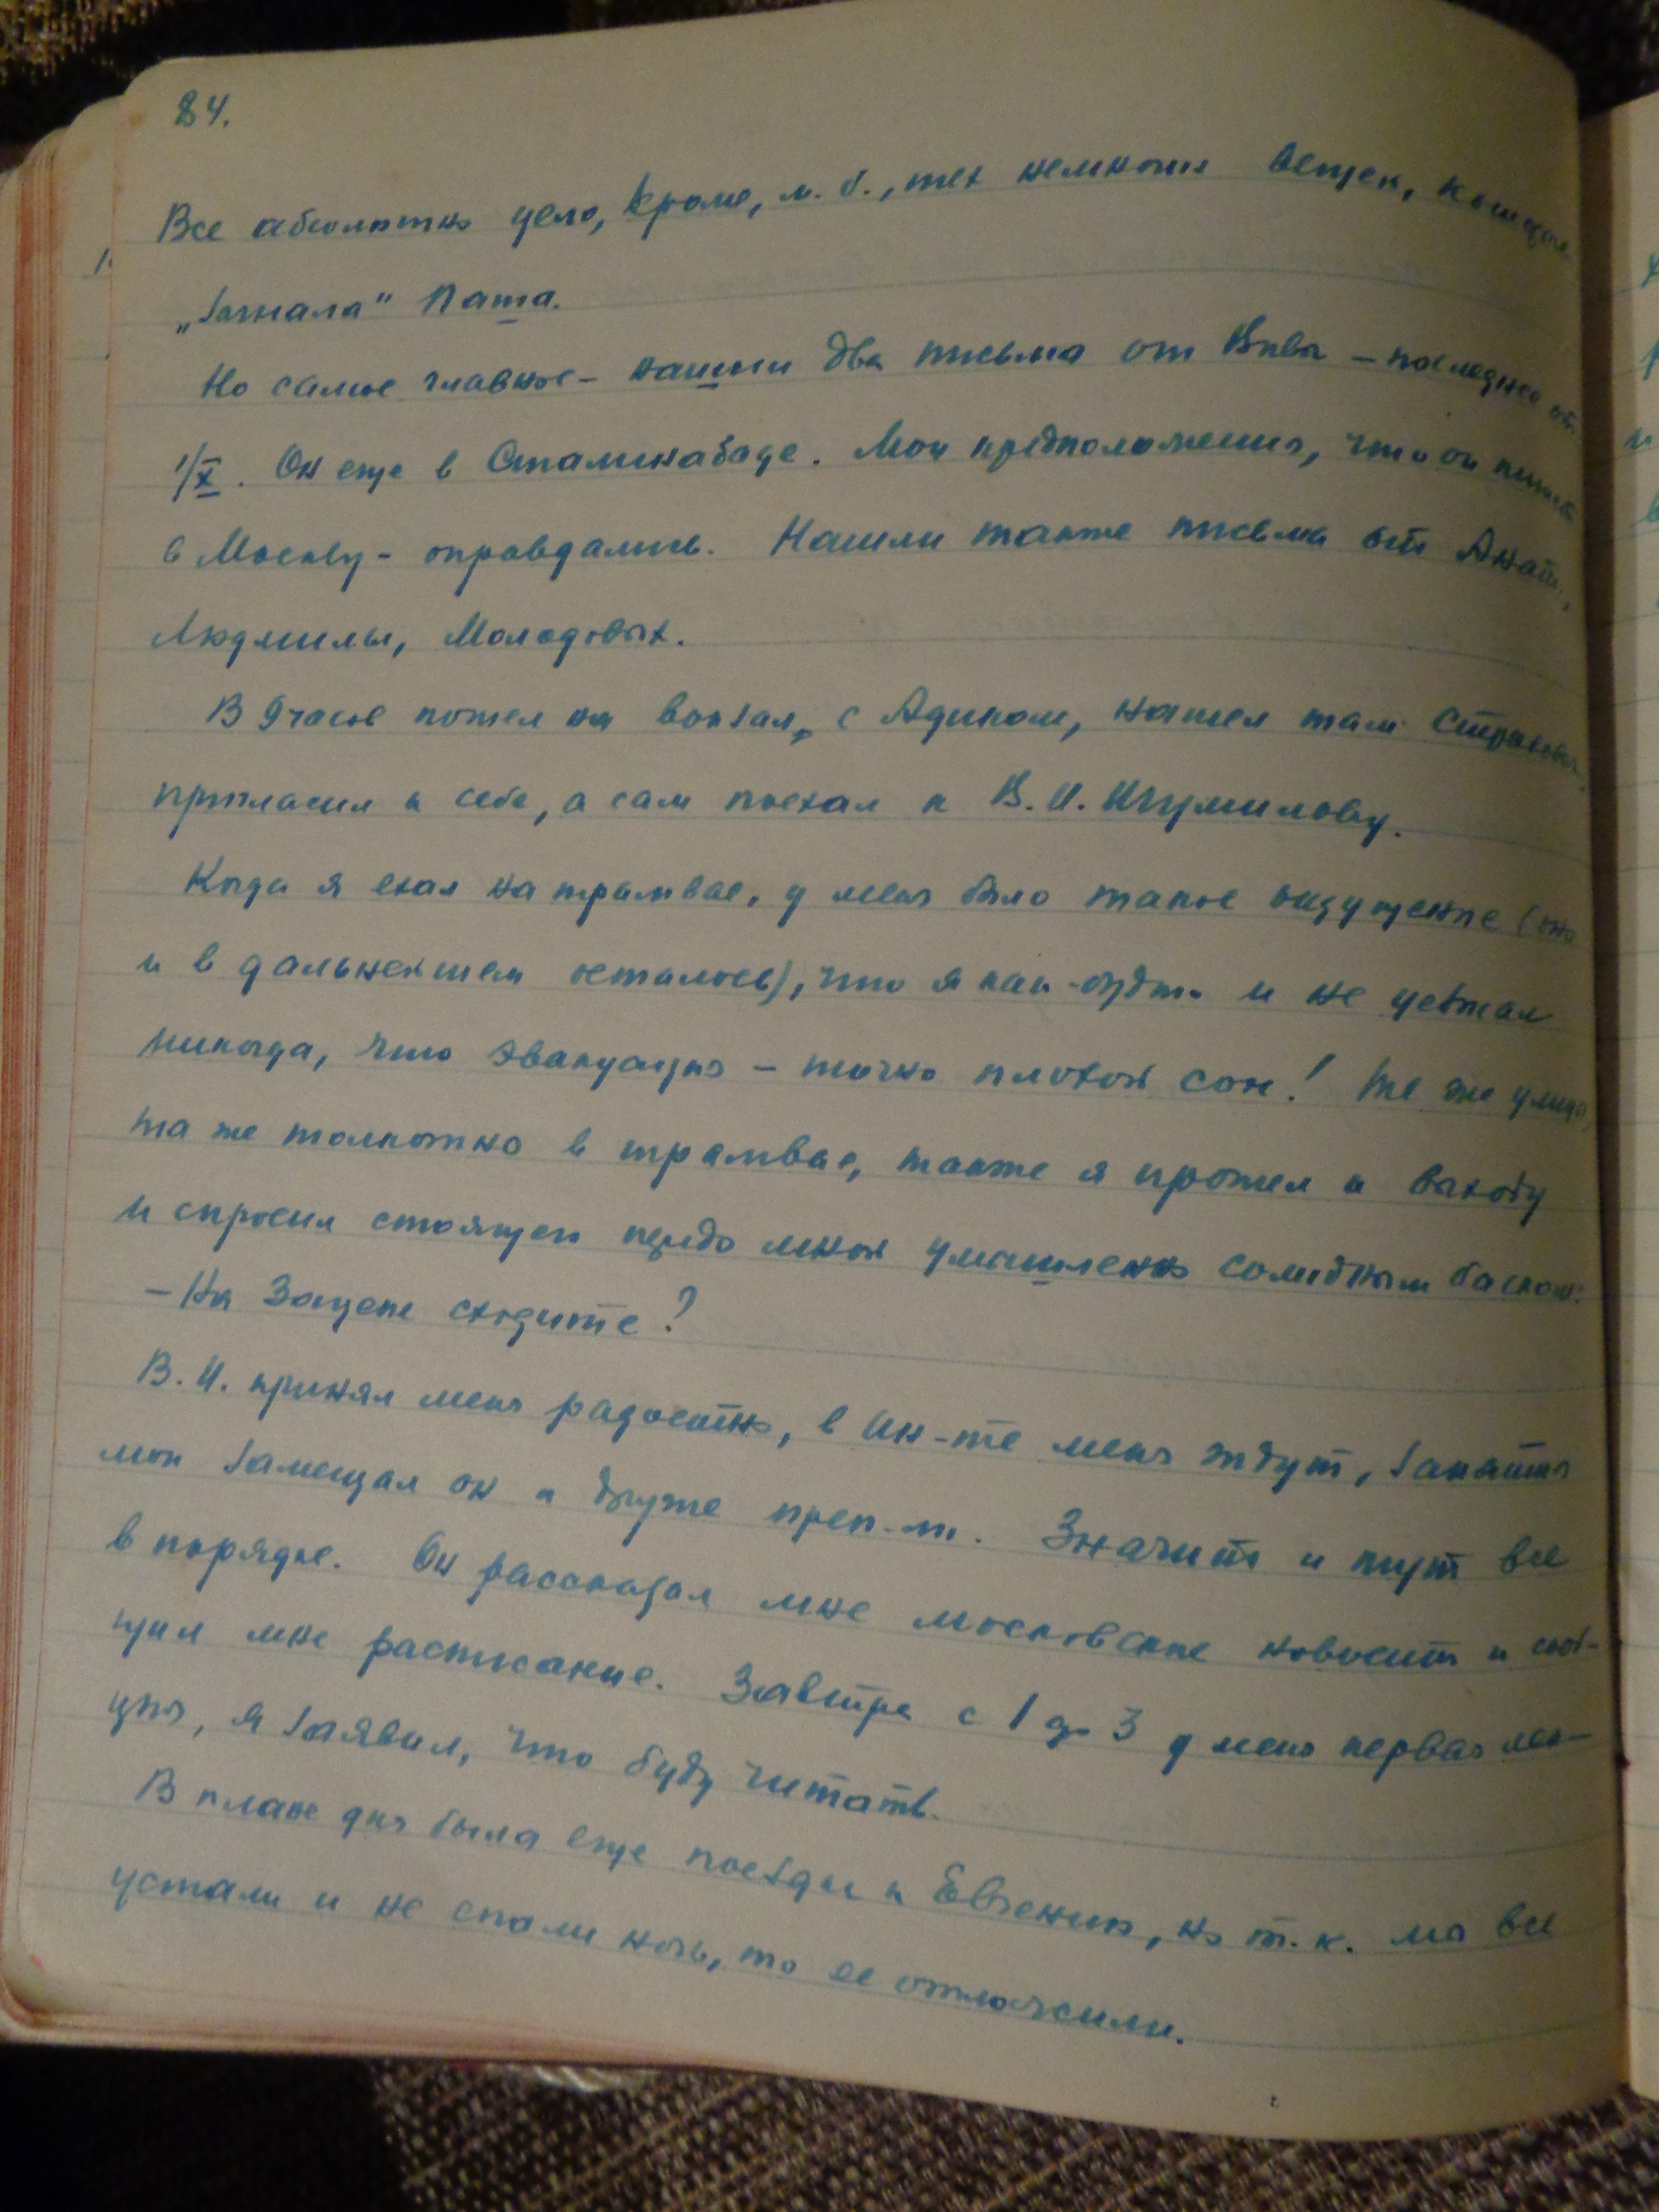 84.
Все абсолютно цело, кроме, м. б., тех немногих вещей, которые
„загнала" Пата.
Но самое главное – нашли два письма от Вивы – последнее от
1/X. Он еще в Сталинабаде. Мои предположения, что он пишет
в Москву – оправдались. Нашли также письма от Анат.,
Людмилы, Молодовых.
В 9 часов пошел на вокзал, с Адиком, нашел там
пригласил к себе, а сам поехал к В. И. Шумилову.
Когда я ехал на трамвае, у меня было такое ощущение (оно
и в дальнейшем осталось), что я как-будто и не уезжал
никогда, что эвакуация – точно плохой сон! Те же улицы,
та же толкотня в трамвае, также я прошел к выходу
и спросил стоящего передо мной умышленно солидным баском:
– На Зацепе сходите?
В. И. принял меня радостно, в Ин-те меня ждут, занятия
мои замещал он и другие преп-ли. Значит и тут все
в порядке. Он рассказал мне московские новости и сооб-
щил мне расписание. Завтра с 1 до 3 у меня первая лек-
ция, я заявил, что буду читать.
В плане дня была еще поездка к Евгении, но т. к. мы все
устали и не спали ночь, то ее отложили.